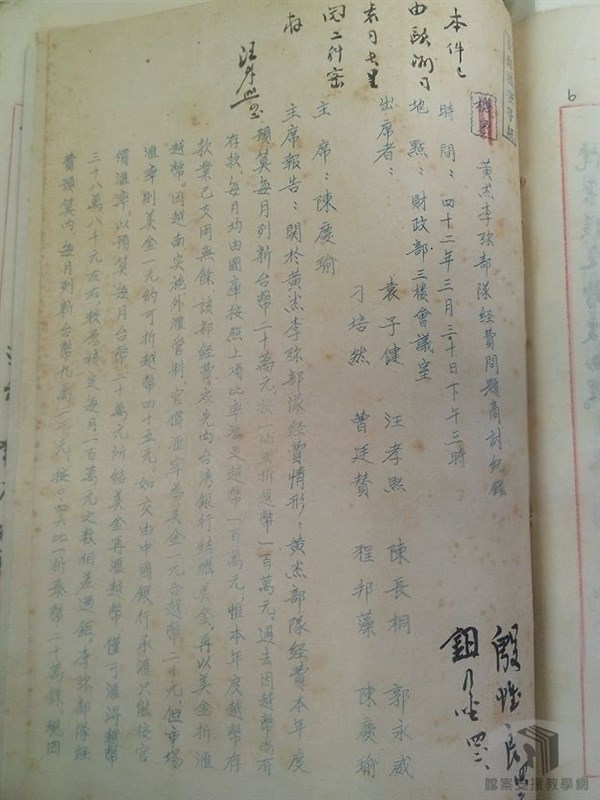 本件已
由歐洲司
機密
黃杰李弥部隊經費問題商討紀錄
時間：四十二年三月三十日下午三時
地點：財政部三樓會議室
出席者：
袁子健 汪孝熙 陳長桐 郭永威
刁培然 曾廷贊 程邦藻 陳慶瑜
主席：陳慶瑜
主席報告：關於黃杰李弥部隊經費情形：黃杰部隊經費本年度
預算每月列新台幣二十萬元，按一比五折越幣一百萬元。過去因越幣尚有
存款，每月均由國庫按照上項比率撥足越幣一百萬元，惟本年度越幣存
款業已支用無餘，該部經費應先向台灣銀行結購美金，再以美金折滙
越幣。因越南實施外滙管制，官價滙率為美金一元合越幣二十元，但市場
滙率則美金一元約可折越幣四十五元，如交由中國銀行承滙只能按官
價滙率，以預算每月台幣二十萬元所結美金再滙越幣，僅可滙得越幣
三十八萬八千元左右，較應撥足每月一百萬元之數相差過鉅。李弥部隊經
費預算內，每月列新台幣九萬一千元，按 比一折泰幣二十萬銖，現因
汪孝熙
殷惟良